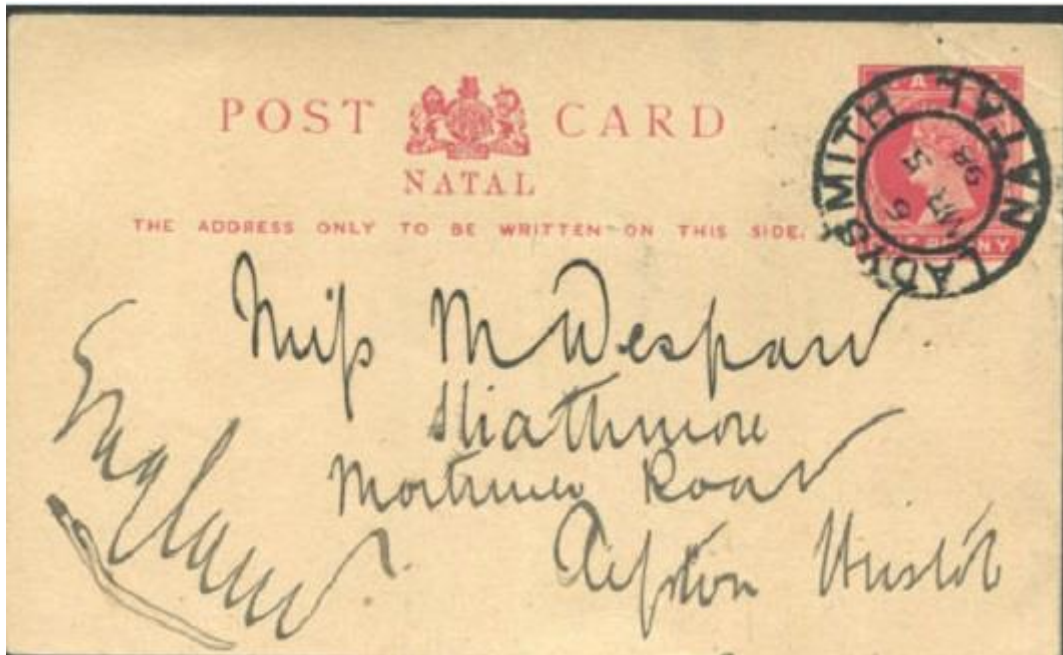 POST CARD
NATAL
THE ADDRESS ONLY TO BE WRITTEN ON THIS SIDE.
NATAL
LADYSMITH
MR 5
98
Miss M
Strathmore
Mortimer Road
Clifton Bristol
England